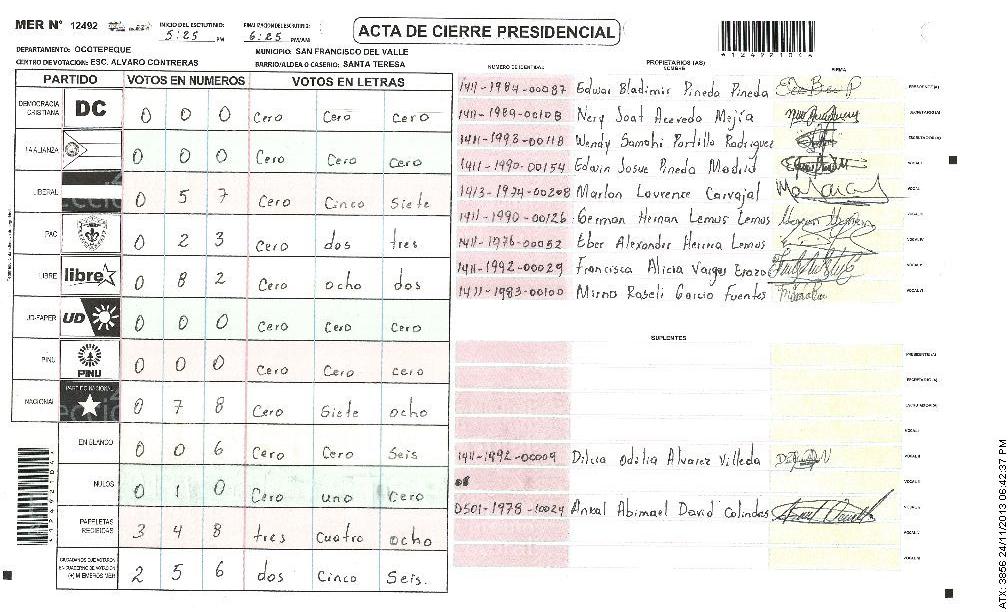 MER N° 12492
INICIO DEL ESCRUTINIO: 5:25 PM
FINALIZACION DEL ESCRUTINIO: 6:25 PM/AM
ACTA DE CIERRE PRESIDENCIAL
*124921004*
DEPARTAMENTO: OCOTEPEQUE
MUNICIPIO: SAN FRANCISCO DEL VALLE
CENTRO DE VOTACION: ESC. ALVARO CONTRERAS
BARRIO/ALDEA O CASERIO: SANTA TERESA
PARTIDO VOTOS EN NUMEROS VOTOS EN LETRAS
DEMOCRACIA CRISTIANA DC 0 0 0 Cero Cero Cero
LA ALIANZA 0 0 0 Cero Cero Cero
LIBERAL 0 5 7 Cero Cinco Siete
PAC 0 2 3 Cero dos tres
LIBRE libre 0 8 2 Cero ocho dos
UD-FAPER UD 0 0 0 Cero Cero Cero
PINU PINU 0 0 0 Cero Cero cero
NACIONAL PARTIDO NACIONAL 0 7 8 Cero Siete ocho
EN BLANCO 0 0 6 Cero Cero Seis
NULOS 0 1 0 Cero uno Cero
PAPELETAS RECIBIDAS 3 4 8 tres Cuatro ocho
CIUDADANOS QUE VOTARON EN CUADERNO DE VOTACION (+) MIEMBROS MER 2 5 6 dos Cinco Seis.
NUMERO DE IDENTIDAD PROPIETARIOS (AS) NOMBRE FIRMA
1411-1984-00087 Edwar Bladimir Pineda Pineda PRESIDENTE (A)
1411-1989-00108 Nery Joat Acevedo Mejía SECRETARIO (A)
1411-1993-00118 Wendy Samahi Portillo Rodriguez ESCRUTADOR (A)
1411-1990-00154 Edwin Josue Pineda Madrid VOCAL I
1413-1974-00208 Marlon Lourence Carvajal VOCAL
1411-1990-00126 German Hernan Lemus Lemus VOCAL
1411-1976-00052 Eber Alexander Herrera Lemus VOCAL IV
1411-1992-00029 Francisca Alicia Vargas Erazo VOCAL V
1411-1983-00100 Mirna Roseli Garcia Fuentes VOCAL VI
SUPLENTES
PRESIDENTE (A)
SECRETARIO (A)
ESCRUTADOR (A)
VOCAL I
1411-1992-00009 Dilcia Odilia Alvarez Villeda VOCAL II
VOCAL III
0501-1978-10024 Anual Abimael David Calindas
VOCAL V
VOCAL VI
*124921004*
ATX: 3856 24/11/2013 06:42:37 PM